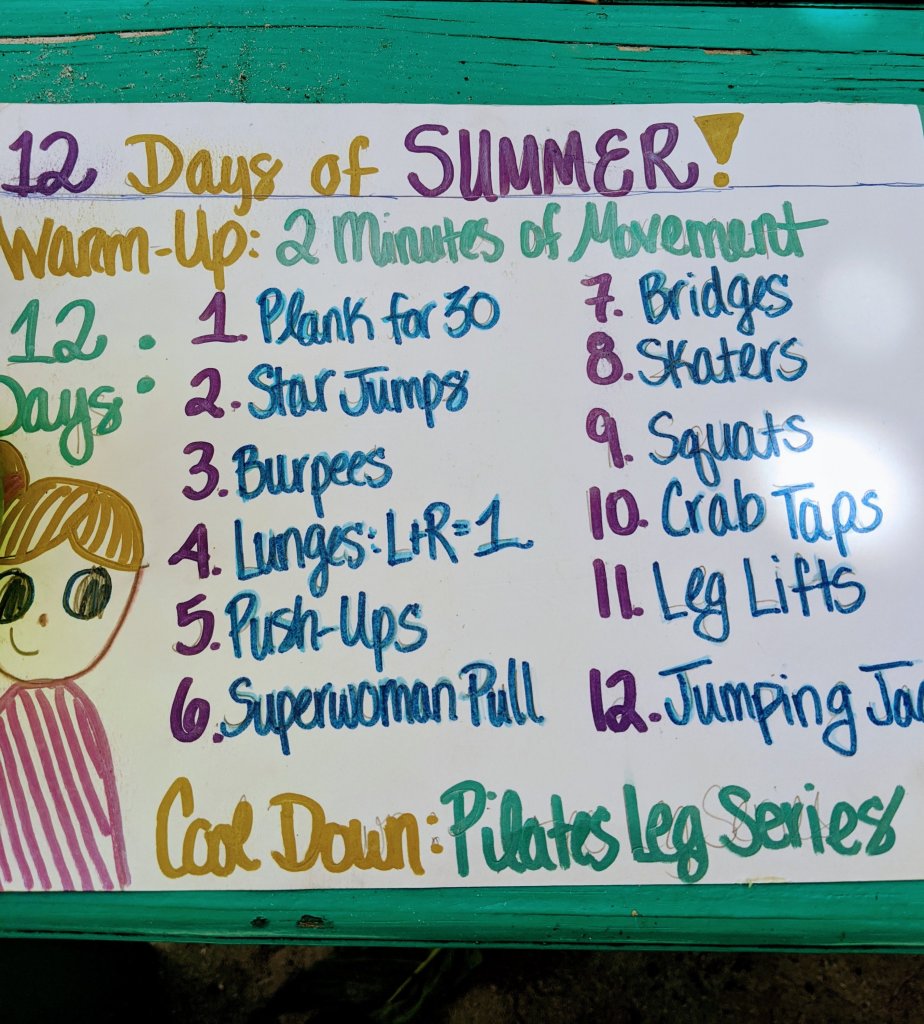 12 Days of SUMMER!
Warm-Up: 2 Minutes of Movement
12 :
Days
1. Plank for 30
2. Star Jumps
3. Burpees
4. Lunges: L+R=1
5. Push-Ups
6. Superwoman Pull
7. Bridges
8. Skaters
9. Squats
10. Crab Taps
11. Leg Lifts
12. Jumping Ja
Cool Down: Pilates Leg Series